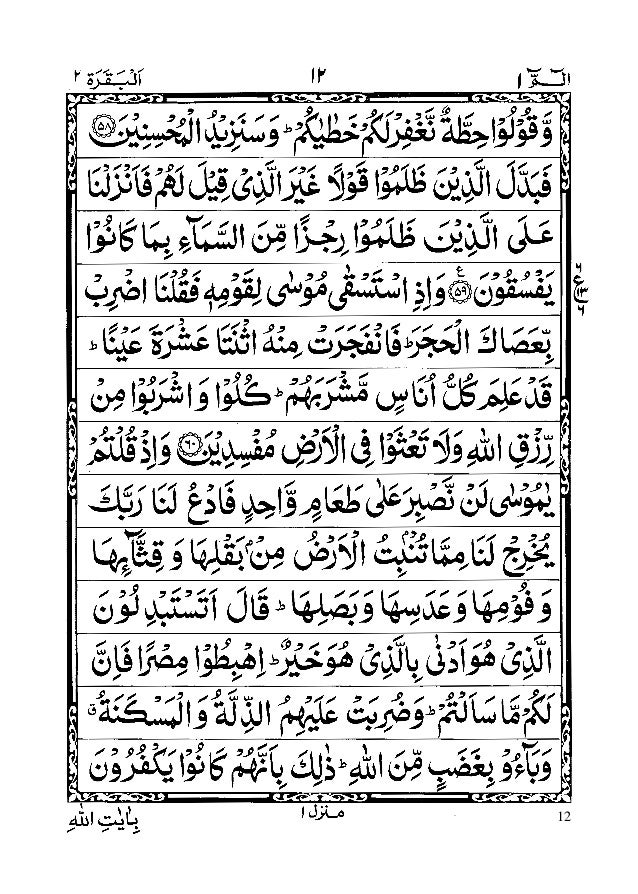 الٓمّٓ ١ ١٢ اَلْبَقَرَة ٢
وَّقُوْلُوْا حِطَّةٌ نَّغْفِرْلَكُمْ خَطٰيٰكُمْ ؕ وَسَنَزِيْدُ الْمُحْسِنِيْنَ ﴿۵۸﴾
فَبَدَّلَ الَّذِيْنَ ظَلَمُوْا قَوْلًا غَيْرَ الَّذِىْ قِيْلَ لَهُمْ فَاَنْزَلْنَا
عَلَى الَّذِيْنَ ظَلَمُوْا رِجْزًا مِّنَ السَّمَآءِ بِمَا كَانُوْا
يَفْسُقُوْنَ ﴿۵۹﴾ ع وَاِذِ اسْتَسْقٰى مُوْسٰى لِقَوْمِهٖ فَقُلْنَا اضْرِبْ
بِّعَصَاكَ الْحَجَرَ ؕ فَانْفَجَرَتْ مِنْهُ اثْنَتَا عَشْرَةَ عَيْنًا ؕ
قَدْ عَلِمَ كُلُّ اُنَاسٍ مَّشْرَبَهُمْ ؕ كُلُوْا وَاشْرَبُوْا مِنْ
رِّزْقِ اللّٰهِ وَلَا تَعْثَوْا فِى الْاَرْضِ مُفْسِدِيْنَ ﴿۶۰﴾ وَاِذْ قُلْتُمْ
يٰمُوْسٰى لَنْ نَّصْبِرَ عَلٰى طَعَامٍ وَّاحِدٍ فَادْعُ لَنَا رَبَّكَ
يُخْرِجْ لَنَا مِمَّا تُنْۢبِتُ الْاَرْضُ مِنْۢ بَقْلِهَا وَقِثَّآئِهَا
وَفُوْمِهَا وَعَدَسِهَا وَبَصَلِهَا ؕ قَالَ اَتَسْتَبْدِلُوْنَ
الَّذِىْ هُوَ اَدْنٰى بِالَّذِىْ هُوَ خَيْرٌ ؕ اِهْبِطُوْا مِصْرًا فَاِنَّ
لَكُمْ مَّا سَاَلْتُمْ ؕ وَضُرِبَتْ عَلَيْهِمُ الذِّلَّةُ وَالْمَسْكَنَةُ ۗ
وَبَآءُوْ بِغَضَبٍ مِّنَ اللّٰهِ ؕ ذٰلِكَ بِاَنَّهُمْ كَانُوْا يَكْفُرُوْنَ
٦ ع ١٣ ٦
منزل ١
بِاٰيٰتِ اللّٰهِ
12